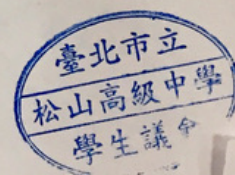 臺北市立
松山高級中學
學生議會